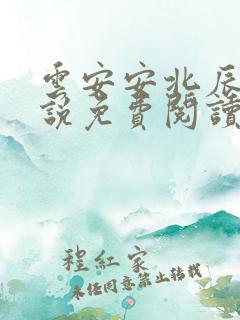 雲安安北辰
說免費閱讀
程紅家
未经同意禁止转载